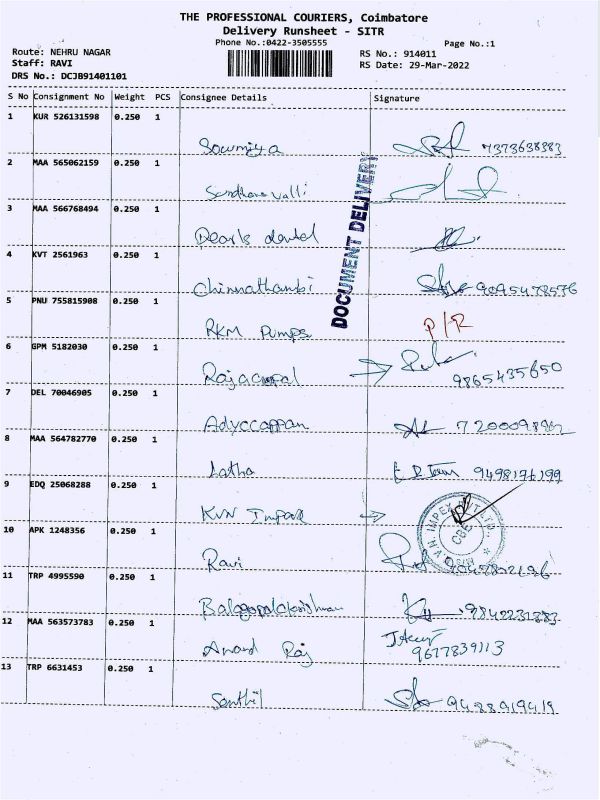 THE PROFESSIONAL COURIERS, Coimbatore
Delivery Runsheet - SITR
Phone No.:0422-3505555
Page No.:1
Route: NEHRU NAGAR
RS No.: 914011
Staff: RAVI
RS Date: 29-Mar-2022
DRS No.: DCJB91401101
S No Consignment No Weight PCS Consignee Details Signature
1 KUR 526131598 0.250 1
Sowmiya 7373638383
2 MAA 565062159 0.250 1
3 MAA 566768494 0.250 1
Pearls dental
DOCUMENT DELIVERY
4 KVT 2561963 0.250 1
Chinnathambi 9095478576
5 PNU 755815908 0.250 1
RKM Pumps P/R
6 GPM 5182030 0.250 1
Rajagopal 9865435650
7 DEL 70046905 0.250 1
8 MAA 564782770 0.250 1
Latha 9498176199
9 EDQ 25068288 0.250 1
KVN Impex
CBE
10 APK 1248356 0.250 1
Ravi
11 TRP 4995590 0.250 1
Balagopalakrishnan 9842231383
12 MAA 563573783 0.250 1
Anand Raj 9677839113
13 TRP 6631453 0.250 1
Senthil 9488919419